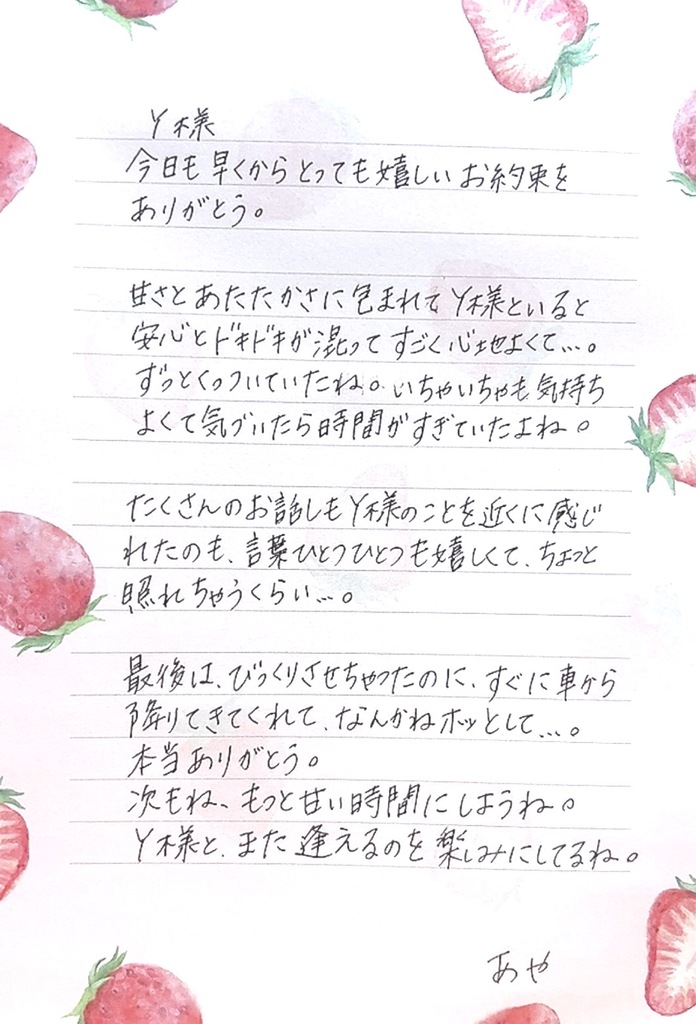 Y様
今日も早くからとっても嬉しいお約束を
ありがとう。
甘さとあたたかさに包まれてY様といると
安心とドキドキが混ってすごく心地よくて…。
ずっとくっついていたね。いちゃいちゃも気持ち
よくて気づいたら時間がすぎていたよね。
たくさんのお話しもY様のことを近くに感じ
れたのも、言葉ひとつひとつも嬉しくて、ちょっと
照れちゃうくらい…。
最後は、びっくりさせちゃったのに、すぐに車から
降りてきてくれて、なんかねホッとして…。
本当ありがとう。
次もね、もっと甘い時間にしようね。
Y様と、また逢えるのを楽しみにしてるね。
あや